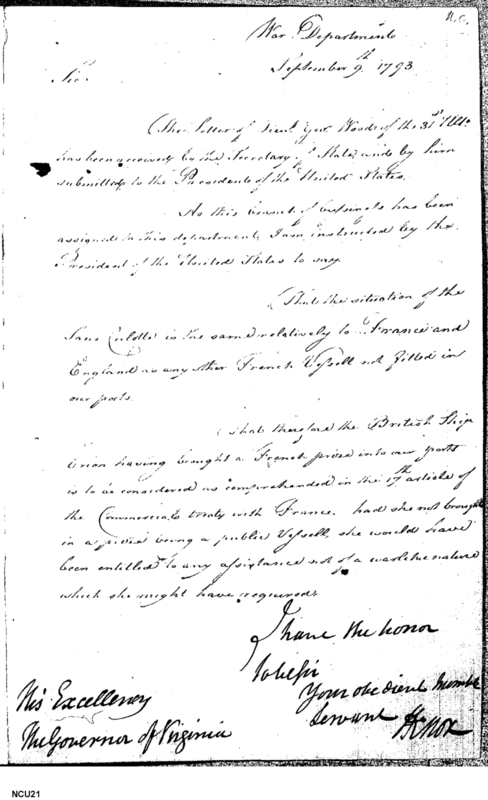 War Department
September 9th 1793
Sir.
The Letter of Lieut. Gov. Wood of the 31st Ulto.
has been received by the Secretary of State and by him
submitted to the President of the United States.
As this branch of business has been
assigned to this department, I am instructed by the
President of the United States to say
That the situation of the
Sans Culotte is the same relatively to France and
England as any other French Vessell not fitted in
our ports.
That therefore the British Ship
Orion having brought a French prize into our ports
is to be considered as comprehended in the 17th article of
the Commercial treaty with France. had she not brought
in a prize being a public Vessell, she would have
been entitled to any assistance not of a warlike nature
which she might have required.
I have the honor
to be Sir
Your obedient humble
Servant
HKnox
His Excellency
The Governor of Virginia
NCU21